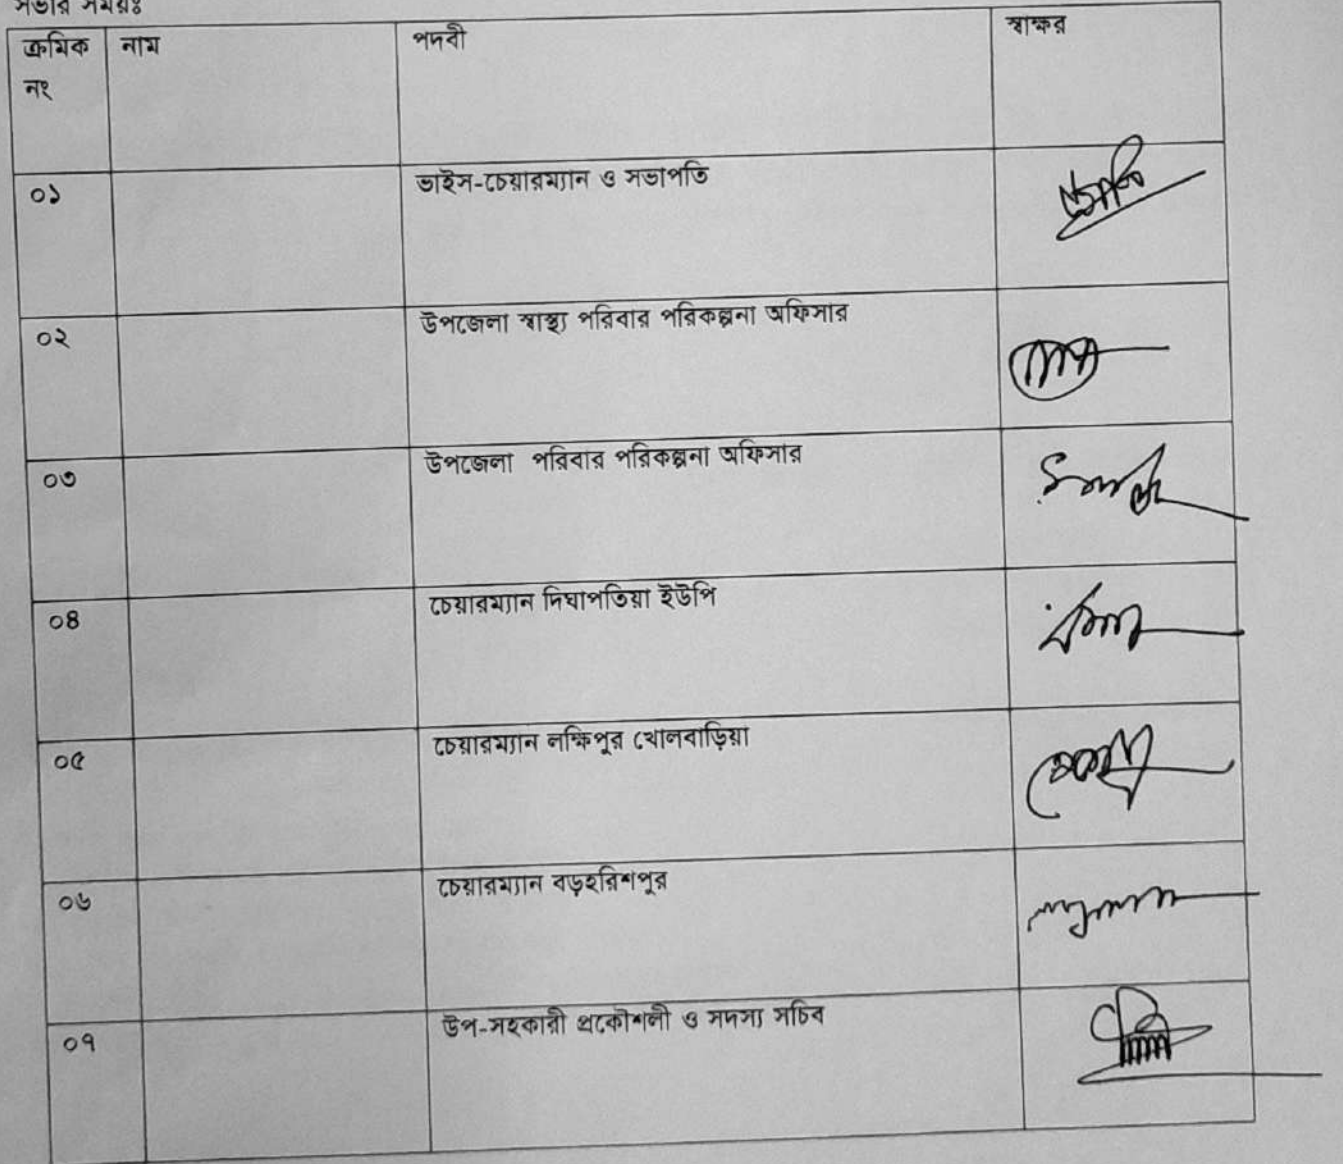 সভার সময়ঃ
ক্রমিক নাম পদবী স্বাক্ষর
নং
০১ ভাইস-চেয়ারম্যান ও সভাপতি
০২ উপজেলা স্বাস্থ্য পরিবার পরিকল্পনা অফিসার
০৩ উপজেলা পরিবার পরিকল্পনা অফিসার
০৪ চেয়ারম্যান দিঘাপতিয়া ইউপি
০৫ চেয়ারম্যান লক্ষিপুর খোলবাড়িয়া
০৬ চেয়ারম্যান বড়হরিশপুর
০৭ উপ-সহকারী প্রকৌশলী ও সদস্য সচিব